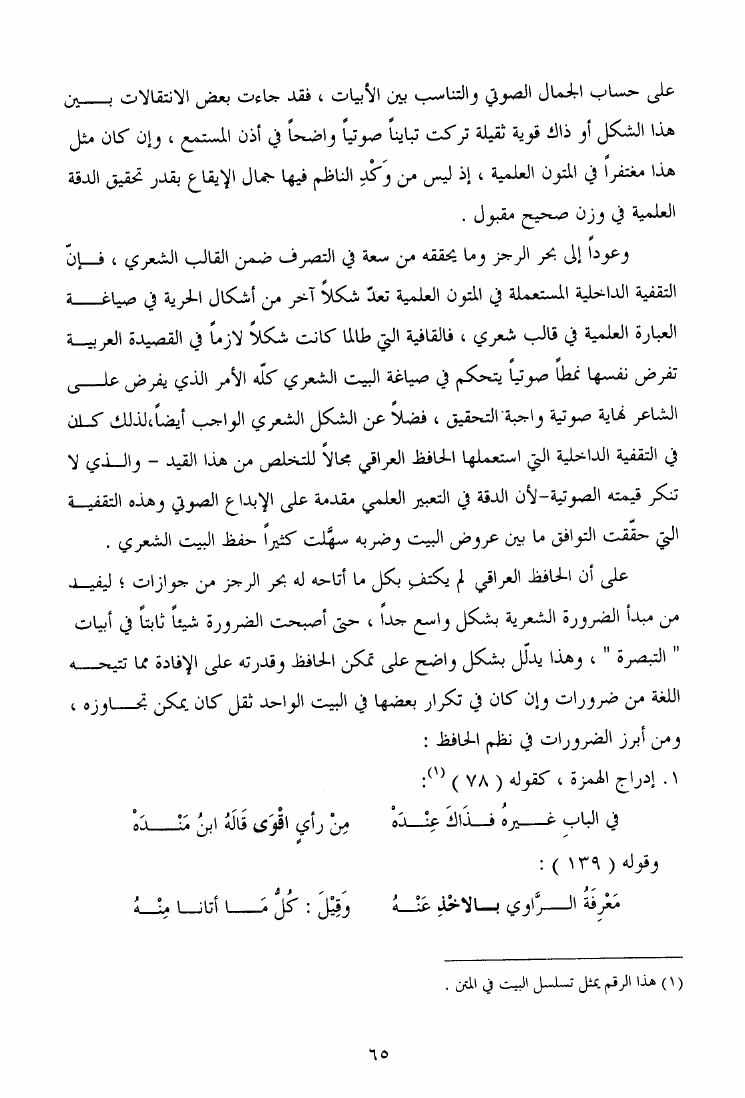 على حساب الجمال الصوتي والتناسب بين الأبيات ، فقد جاءت بعض الانتقالات بـــين
هذا الشكل أو ذاك قوية ثقيلة تركت تبايناً صوتياً واضحاً في أذن المستمع ، وإن كان مثل
هذا مغتفراً في المتون العلمية ، إذ ليس من وَكْدِ الناظم فيها جمال الإيقاع بقدر تحقيق الدقة
العلمية في وزن صحيح مقبول .
وعوداً إلى بحر الرجز وما يحققه من سعة في التصرف ضمن القالب الشعري ، فــإنّ
التقفية الداخلية المستعملة في المتون العلمية تعدّ شكلاً آخر من أشكال الحرية في صياغـــة
العبارة العلمية في قالب شعري ، فالقافية التي طالما كانت شكلاً لازماً في القصيدة العربيــة
تفرض نفسها نمطاً صوتياً يتحكم في صياغة البيت الشعري كلّه الأمر الذي يفرض علـــى
الشاعر نهاية صوتية واجبة التحقيق ، فضلاً عن الشكل الشعري الواجب أيضاً،لذلك كــان
في التقفية الداخلية التي استعملها الحافظ العراقي مجالاً للتخلص من هذا القيد – والــذي لا
تنكر قيمته الصوتية–لأن الدقة في التعبير العلمي مقدمة على الإبداع الصوتي وهذه التقفيــة
التي حقّقت التوافق ما بين عروض البيت وضربه سهَّلت كثيراً حفظ البيت الشعري .
على أن الحافظ العراقي لم يكتفِ بكل ما أتاحه له بحر الرجز من جوازات ؛ ليفيــد
من مبدأ الضرورة الشعرية بشكل واسع جداً ، حتى أصبحت الضرورة شيئاً ثابتاً في أبيات
" التبصرة " ، وهذا يدلّل بشكل واضح على تمكن الحافظ وقدرته على الإفادة مما تتيحـــه
اللغة من ضرورات وإن كان في تكرار بعضها في البيت الواحد ثقل كان يمكن تجـــاوزه ،
ومن أبرز الضرورات في نظم الحافظ :
١. إدراج الهمزة ، كقوله ( ٧٨ ) (١):
في البابِ غَـــيرهُ فَــذَاكَ عِنْــدَهْ مِنْ رأيٍ اقْوَى قَالَهُ ابنُ مَنْـــدَهْ
وقوله ( ١٣٩ ) :
مَعْرِفَةُ الـــرَّاوي بــالاخْذِ عَنْــهُ وَقِيْلَ : كُلُّ مَـــا أتانــا مِنْــهُ
(١) هذا الرقم يمثل تسلسل البيت في المتن .
٦٥